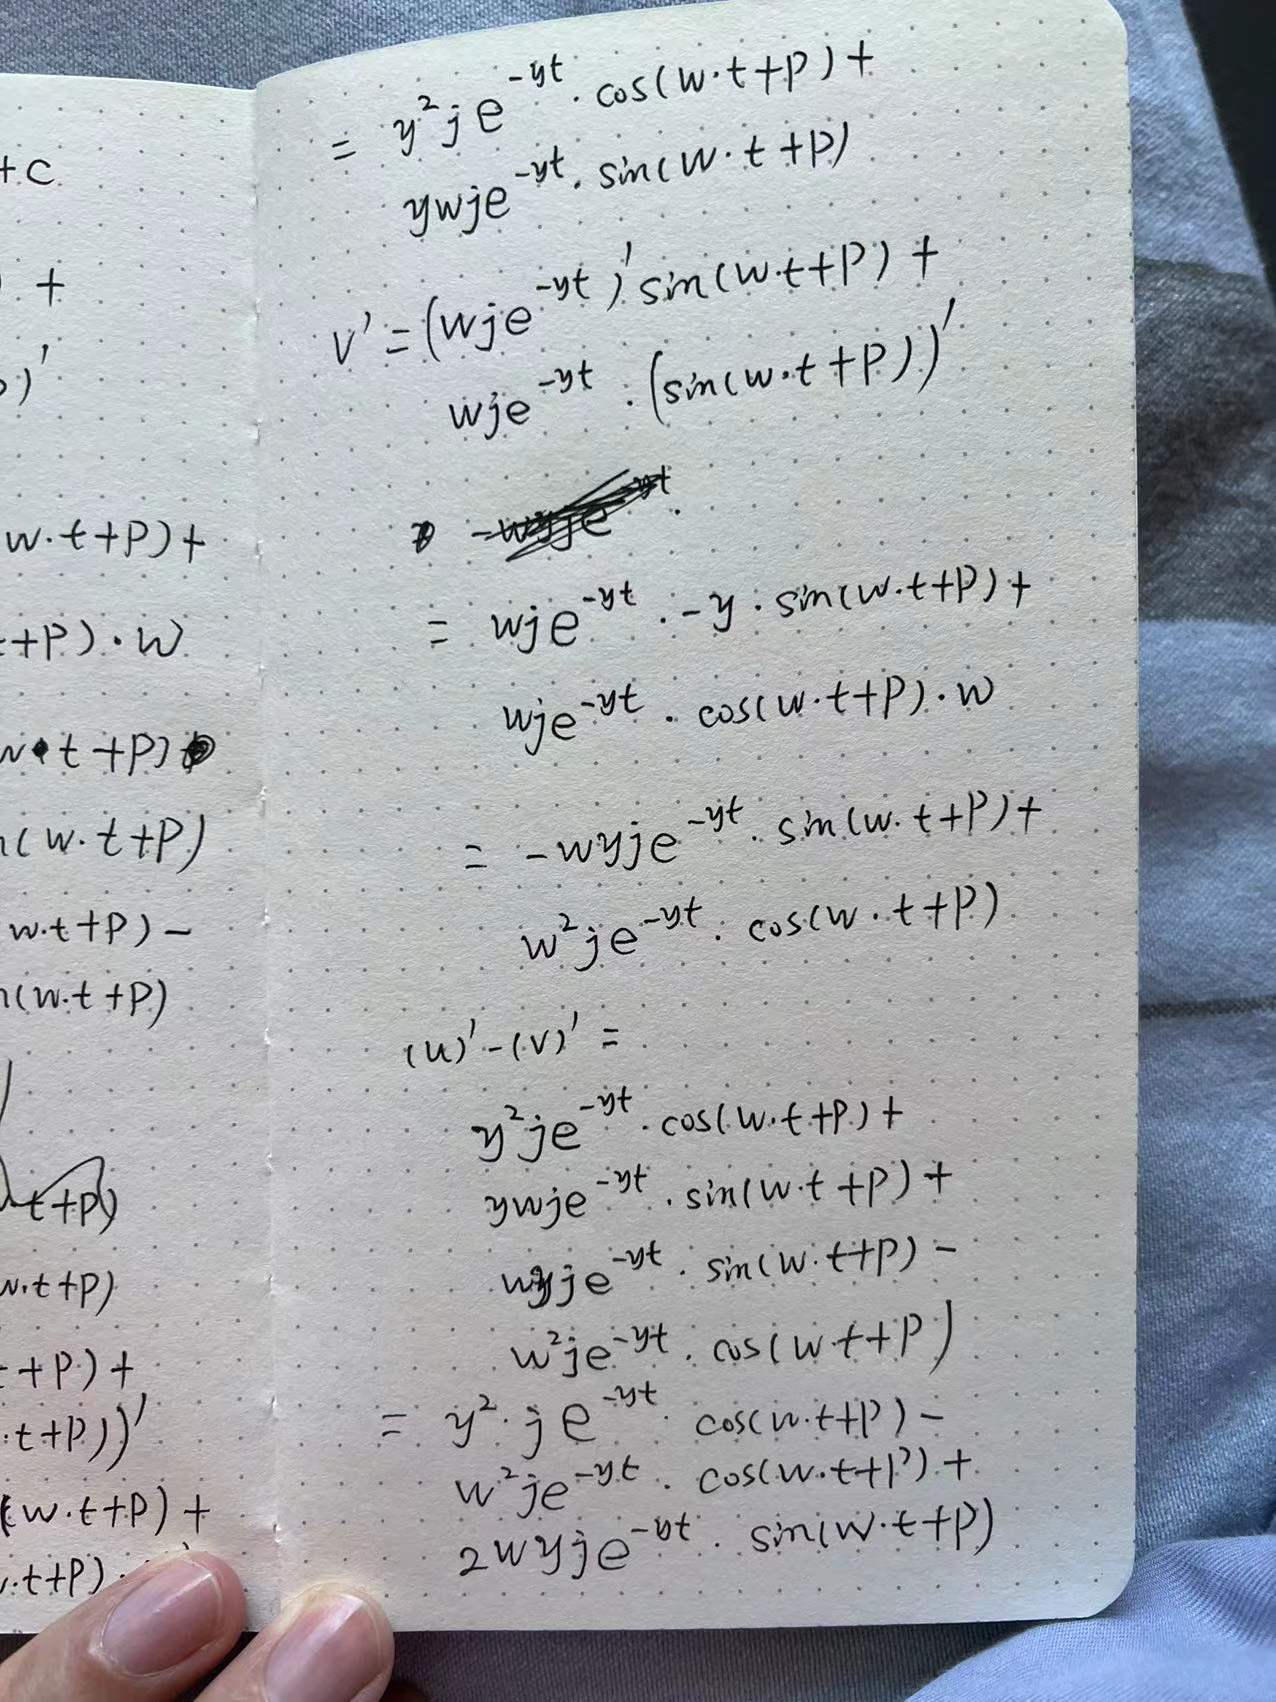 +c
+
)'
w·t+p)+
t+p)·w
w·t+p)
n(w·t+p)
w·t+p)-
n(w·t+p)
t+p)
w·t+p)
t+p)+
·t+p))'
(w·t+p)+
·t+p)·
= y²je^-yt · cos(w·t+p)+
ywje^-yt · sin(w·t+p)
v'=(wje^-yt)'sin(w·t+p)+
wje^-yt · (sin(w·t+p))'
= wje^-yt · -y · sin(w·t+p)+
wje^-yt · cos(w·t+p)·w
= -wyje^-yt · sin(w·t+p)+
w²je^-yt · cos(w·t+p)
(u)'-(v)'=
y²je^-yt · cos(w·t+p)+
ywje^-yt · sin(w·t+p)+
wyje^-yt · sin(w·t+p)-
w²je^-yt · cos(w·t+p)
= y²·je^-yt · cos(w·t+p)-
w²je^-yt · cos(w·t+p)+
2wyje^-yt · sin(w·t+p)